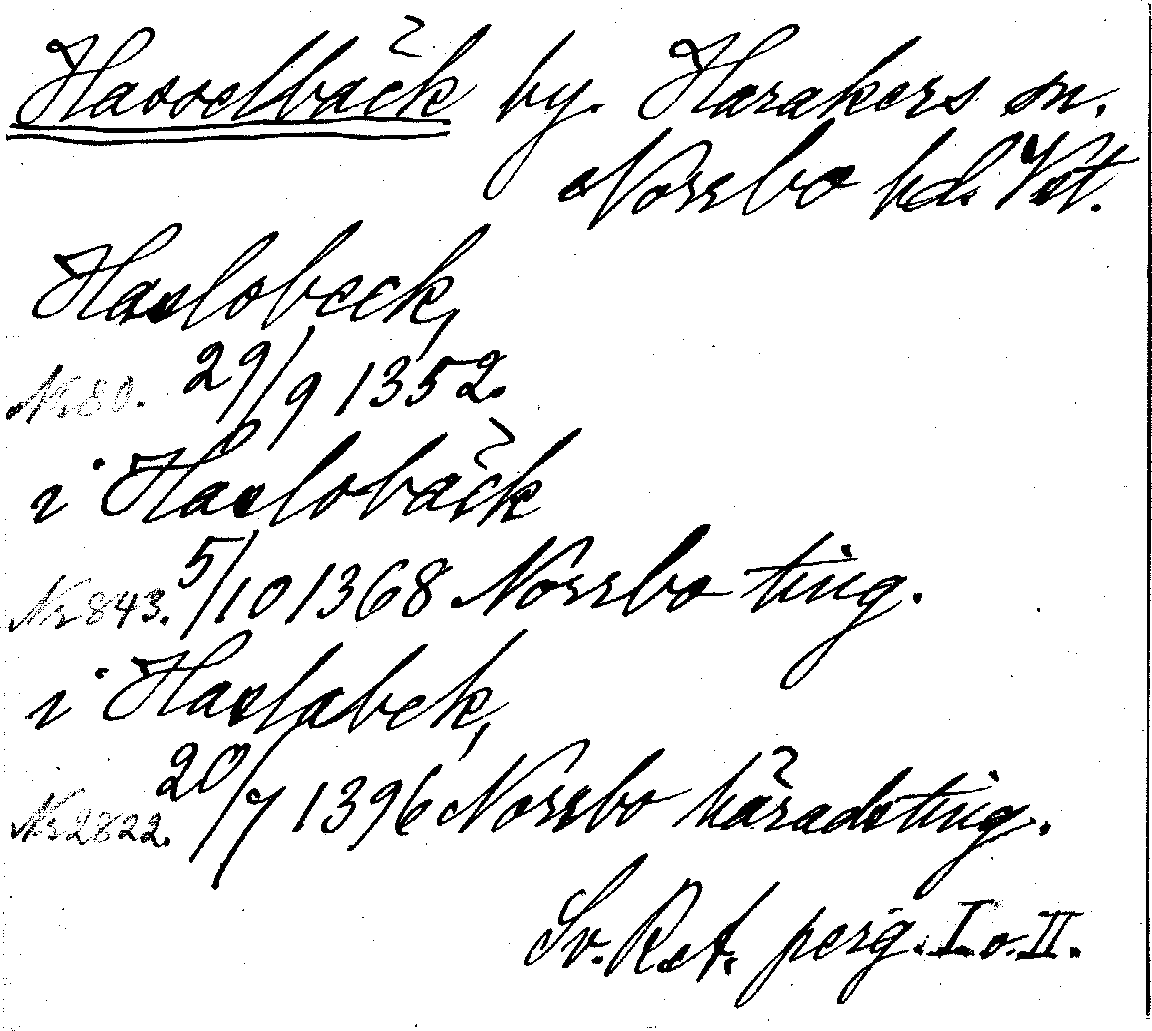 Hasselbäck by. Harakers sn.
Norrbo hd. Vst.
Haslobeck,
Nr 80. 29/9 1352.
i Haslobäck
Nr 843. 5/10 1368 Norrbo ting.
i Haslabek,
Nr 2822. 20/7 1396 Norrbo häradsting.
Sv. R.A. perg. I o. II.